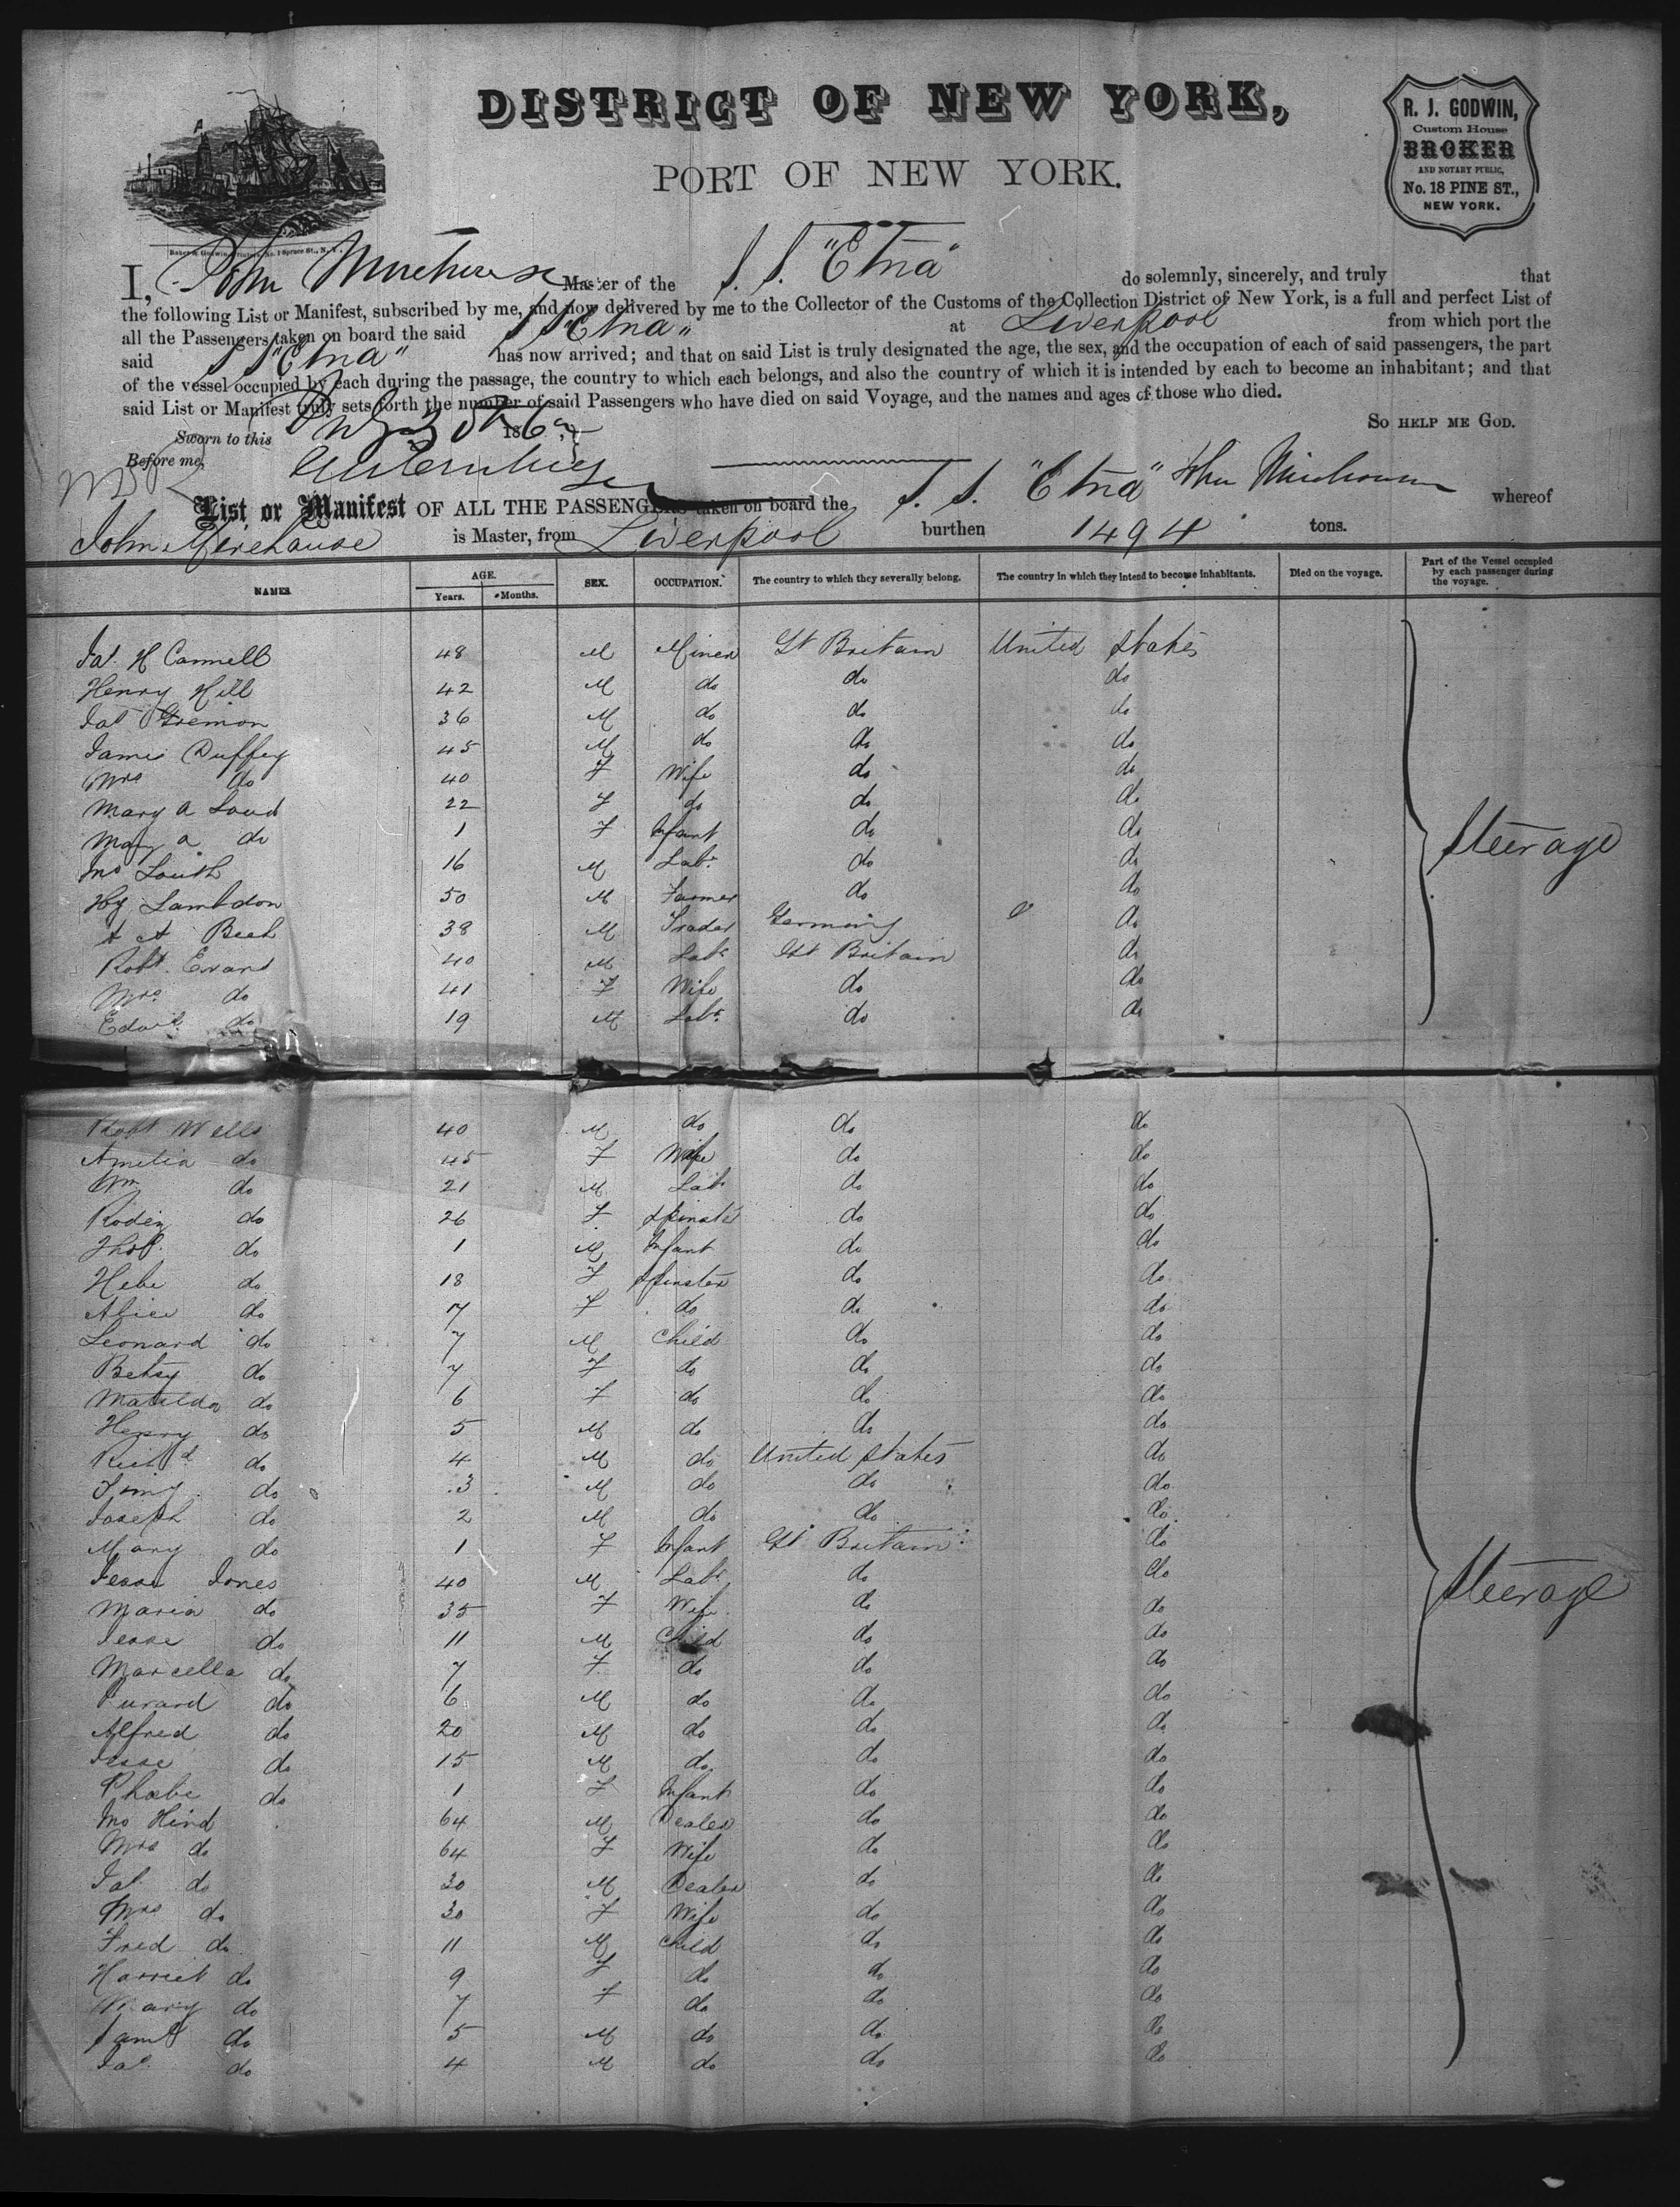 DISTRICT OF NEW YORK,
PORT OF NEW YORK.
R. J. GODWIN,
Custom House
BROKER
AND NOTARY PUBLIC,
No. 18 PINE ST.,
NEW YORK.
Baker & Godwin, Printers, No. 1 Spruce St., N. Y.
I, John Master of the S. S. "Etna" do solemnly, sincerely, and truly that
the following List or Manifest, subscribed by me, and now delivered by me to the Collector of the Customs of the Collection District of New York, is a full and perfect List of
all the Passengers taken on board the said S S "Etna" at Liverpool from which port the
said S S "Etna" has now arrived; and that on said List is truly designated the age, the sex, and the occupation of each of said passengers, the part
of the vessel occupied by each during the passage, the country to which each belongs, and also the country of which it is intended by each to become an inhabitant; and that
said List or Manifest truly sets forth the number of said Passengers who have died on said Voyage, and the names and ages of those who died.
So help me God.
Sworn to this 186
Before me,
List or Manifest OF ALL THE PASSENGERS taken on board the S. S. "Etna" whereof
John Mirehouse is Master, from Liverpool burthen 1494 tons.
NAMES. AGE. Years. Months. SEX. OCCUPATION. The country to which they severally belong. The country in which they intend to become inhabitants. Died on the voyage. Part of the Vessel occupied by each passenger during the voyage.
Jas. H Cannell 48 M Miner Gt Britain United States
Henry Hill 42 M do do do
Jas 36 M do do do
James Duffey 45 M do do do
Mrs do 40 F Wife do do
Mary A 22 F do do do
Mary A do 1 F Infant do do
Jno South 16 M Labr do do
Hy Lambdon 50 M Farmer do do
A A Beck 38 M Trader Germany do
Robt. Evans 40 M Labr Gt Britain do
Mrs do 41 F Wife do do
Edwd do 19 M Labr do do
Steerage
Robt Wells 40 M do do do
Amelia do 45 F Wife do do
Wm do 21 M Labr do do
do 26 F Spinster do do
Thos. do 1 M Infant do do
Hebe do 18 F Spinster do do
Alice do 7 F do do do
Leonard do 7 M Child do do
Betsy do 7 F do do do
Matilda do 6 F do do do
Henry do 5 M do do do
Richd do 4 M do United States do
do 3 M do do do
Joseph do 2 M do do do
Mary do 1 F Infant Gt Britain do
Jesse Jones 40 M Labr do do
Maria do 35 F Wife do do
Jesse do 11 M Child do do
Marcella do 7 F do do do
do 6 M do do do
Alfred do 20 M do do do
Jesse do 15 M do do do
Phoebe do 1 F Infant do do
Jno Hind 64 M Dealer do do
Mrs do 64 F Wife do do
Jas do 30 M Dealer do do
Mrs do 30 F Wife do do
Fred do 11 M Child do do
Harriet do 9 F do do do
Mary do 7 F do do do
Saml do 5 M do do do
Jas do 4 M do do do
Steerage